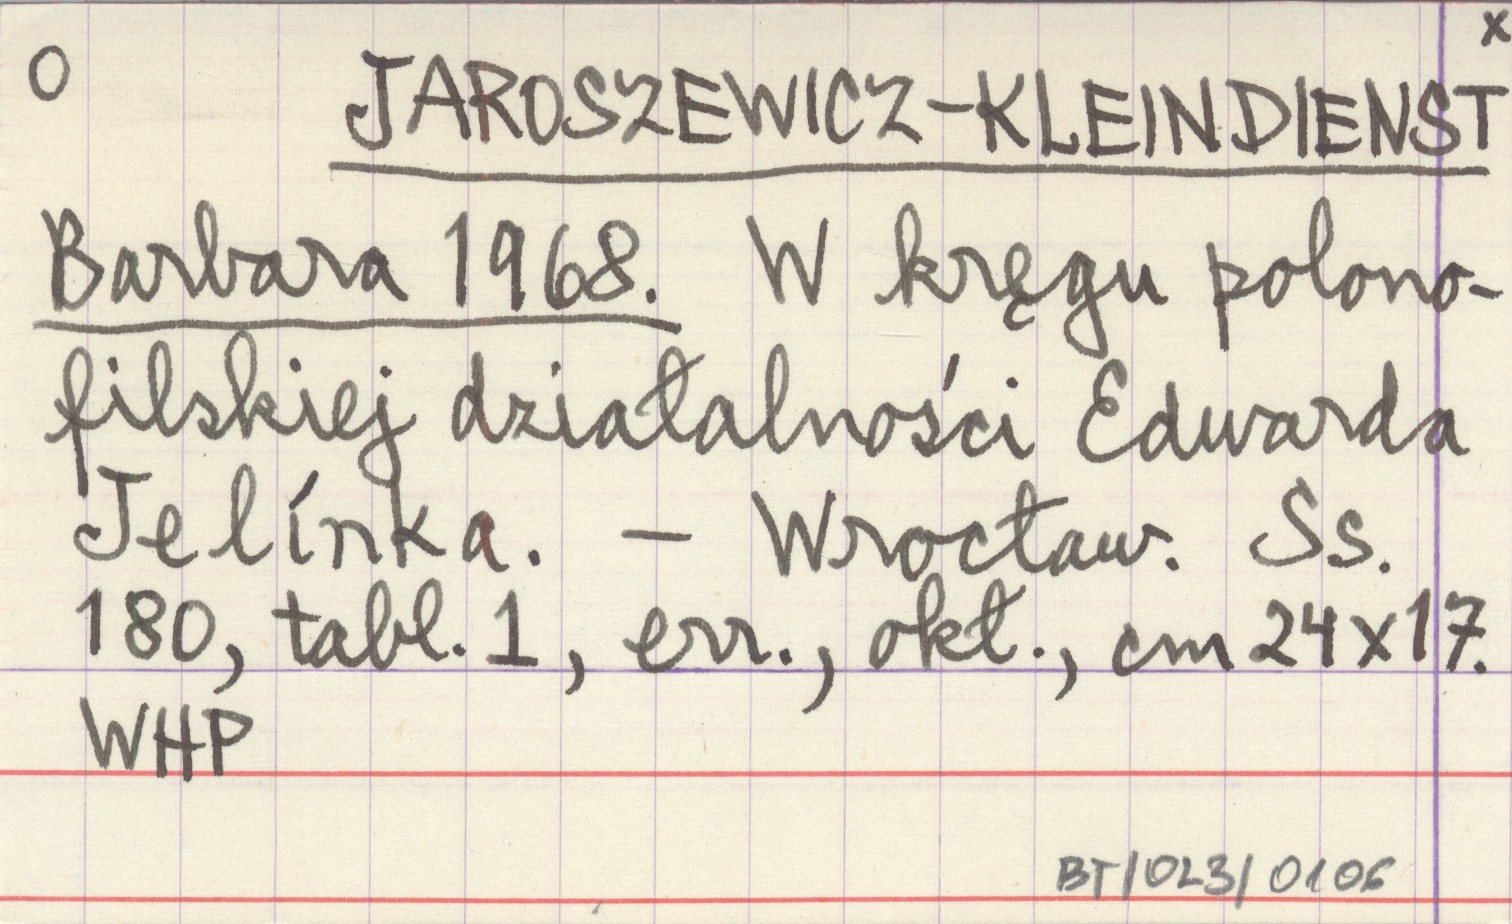 O x
JAROSZEWICZ-KLEINDIENST
Barbara 1968. W kręgu polono-
filskiej działalności Edwarda
Jelínka. – Wrocław. Ss.
180, tabl. 1, err., okł., cm 24x17.
WHP
BT/OL3/0106